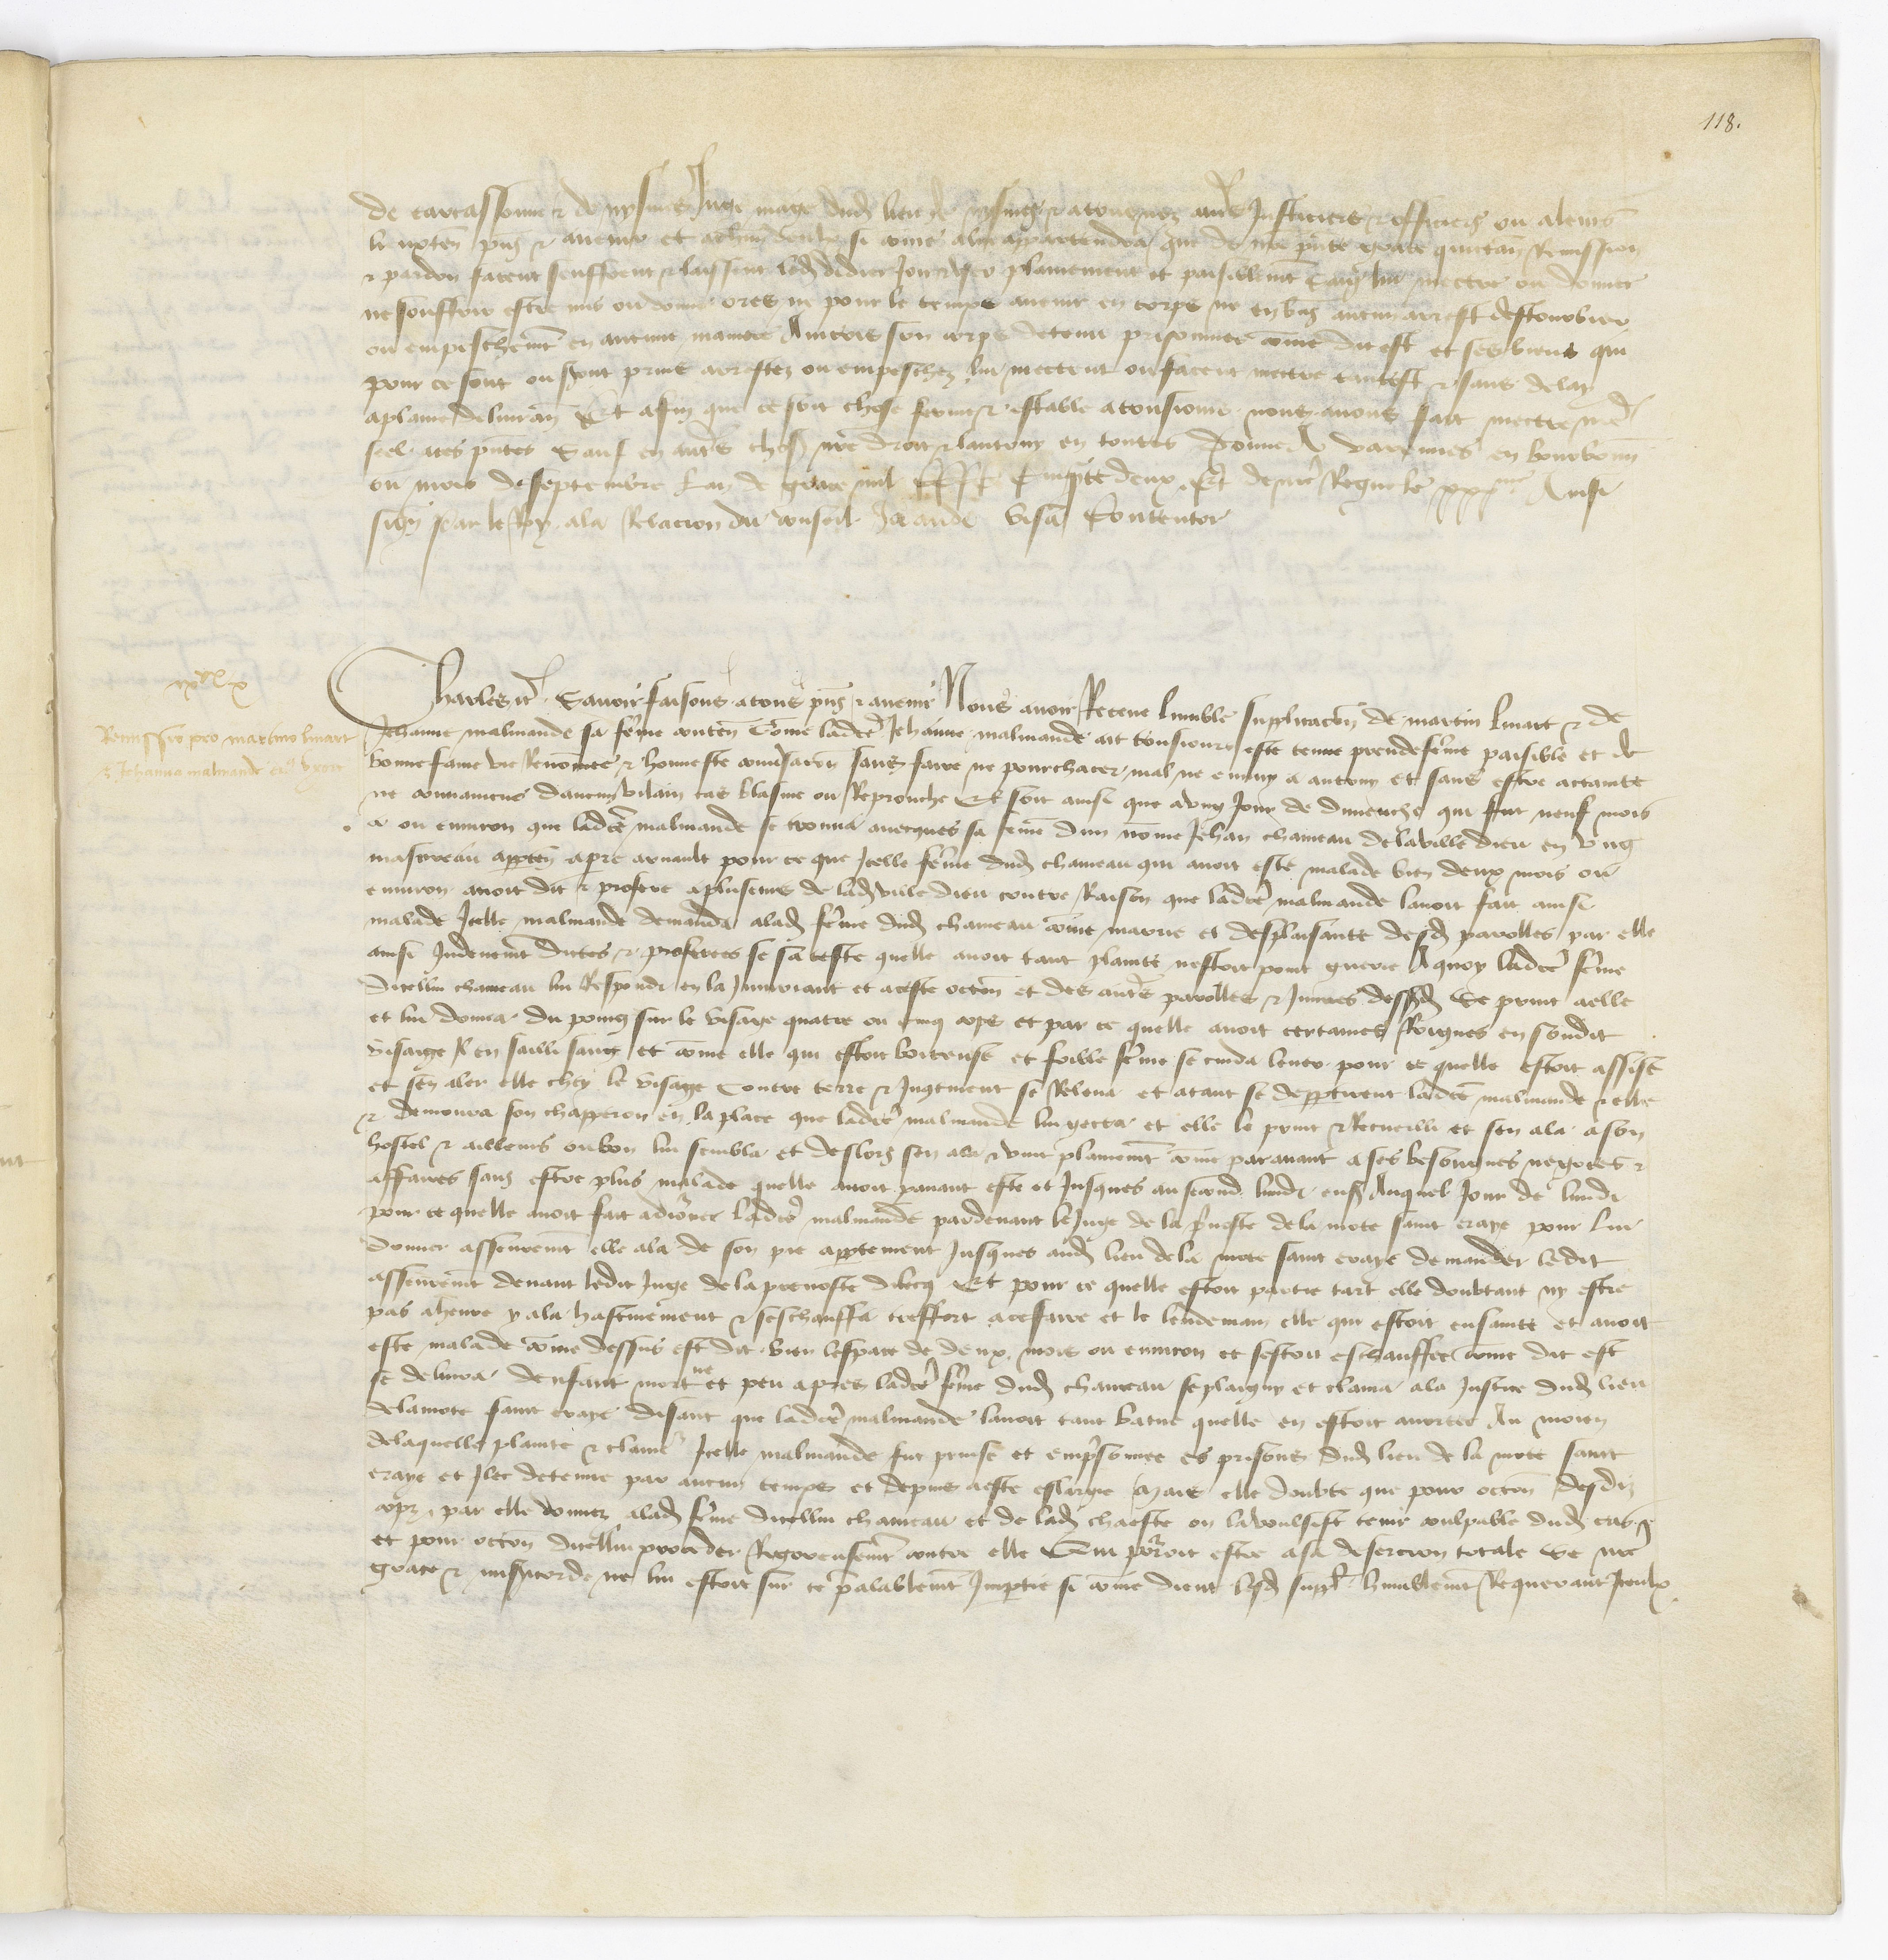 118.
de carcassonne & de nysmes Juge mage dud lieu de nysmes & a tous noz autres Justiciers & officiers ou a leurs
lieuxten pns & avenir et a chun deulx si come a lui appartendra que de nre pnte grace quictan Remission
& pardon facent seuffrent & laissent led didier Joir & user plainement et paisiblemt sans lui mectre ou donner
ne souffrir estre mis ou donne ores ne pour le temps avenir en corps ne en biens aucun arrest destourbier
ou empeschemt en aucune maniere Aincois son corps detenu prisonnier come dit est et ses biens qui
pour ce sont ou seront prins arrestez ou empeschez lui mectent ou facent mectre tantost & sans delay
a plaine delivran Et afin que ce soit chose ferme & estable a tousiours nous avons fait mectre nre
seel a ces pntes Sauf en autres choses nre droit & lautruy en toutes Donne A varennes en bourbonn
ou mois de septembre Lan de grace mil CCCC Cinqte deux Et de nre Regne le xxxme Ainsi
signe par le Roy a la Relacion du conseil Ja aude visa Contentor
Charles &c Savoir faisons a tous pns & avenir Nous avoir Receue lumble supplicacon de martin linart & de
Jehanne malmande sa feme conten Come ladce Jehanne malmande ait tousiours este tenue preudefeme paisible et de
bonne fame vie Renommee & honneste conversacon sans faire ne pourchacer mal ne ennuy a autruy et sans estre actainte
ne convaincue daucun vilain cas blasme ou Reprouche Et soit ainsi que a ung Jour de dimenche qui fut neuf mois
a ou environ que ladce malmande se trouva avecques la feme dun nome Jehan chameau de la ville dieu en ung
masureau appten a pre arnault pour ce que Icelle feme dud chameau qui avoit este malade bien deux mois ou
environ avoit dit & profere a plusieurs de lad ville dieu contre Raison que ladce malmande lavoit fait ainsi
malade Icelle malmande demanda a lad feme dud chameau come marrie et desplaisante desd parolles par elle
ainsi Induemt dictes & proferees se sa teste quelle avoit tant plainte nestoit point guerie A quoy ladce feme
dicellui chameau lui Respondi en la Injuriant et a ceste occon et des autres parolles & Injures dessusd se print a elle
et lui donna du poing sur le visage quatre ou cinq cops et par ce quelle avoit certaines Roignes en sondit
visaige Il en sailli sang et come elle qui estoit boiteuse et foible feme se cuida lever pour ce quelle estoit assise
et sen aler elle chey le visage contre terre & Incontinent se Releva et atant se deppartirent ladce malmande & elle
& demoura son chapperon en la place que ladce malmande lui gecta et elle le print & Recueilli et sen ala a son
hostel & ailleurs ou bon lui sembla et deslors sen ala & vint plainemt come paravant a ses besongnes negoces &
affaires sans estre plus malade quelle avoit pavant este et Jusques au second lundi ens Auquel Jour de lundi
pour ce quelle avoit fait adiourner ladce malmande pardevant le Juge de la prevoste de la mote saint eraye pour lui
donner asseuremt elle ala de son pie apptement Jusques aud lieu de la mote saint eraye demander ledit
asseuremt devant ledit Juge de la prevoste dilecq Et pour ce quelle estoit partie tart elle doubtant ny estre
pas a heure y ala hastivement & seschauffa tresfort a ce faire et le lendemain elle qui estoit ensainte et avoit
este malade come dessus est dit bien lespace de deux mois ou environ et sestoit eschauffee come dit est
se delivra denfant mort ne et peu apres ladce feme dud chameau se plaigny et clama a la Justice dud lieu
de la mote saint eraye disant que ladce malmande lavoit tant batue quelle en estoit avortee Au moien
de laquelle plainte & clameur Icelle malmande fut prinse et emprisonnee es prisons dud lieu de la mote saint
eraye et Ilec detenue par aucun temps et depuis a este eslargie Mais elle doubte que pour occon desdiz
cops par elle donnez a lad feme dicellui chameau et de lad chaeste on la voulsist tenir coulpable dud cas
et pour occon dicellui proceder Rigoreusemt contre elle Qui pourroit estre a sa desercion totale Se nre
grace & misericorde ne lui estoit sur ce prealablemt Impartie si come dient lesd suppl humblemt Requerant Iceulx
Remissio pro martino linart
& Jehanna malmande eius uxore